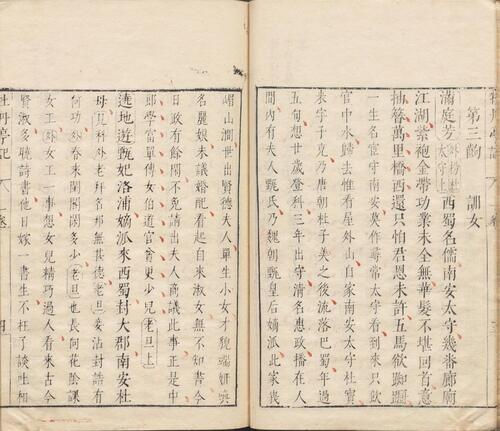 第三齣　訓女
滿庭芳外扮杜太守上西蜀名儒南安太守幾番廊廟
江湖紫袍金帶功業未全無華髮不堪回首意
抽簪萬里橋西還只怕君恩未許五馬欲踟躕
一生名宦守南安莫作尋常太守看到來只飲
官中水歸去惟看屋外山自家南安太守杜寶
表字子充乃唐朝杜子美之後流落巴蜀年過
五旬想廿歲登科三年出守清名惠政播在人
間內有夫人甄氏乃魏朝甄皇后嫡派此家峩
嵋山澗世出賢德夫人單生小女才貌端妍喚
名麗娘未議婚配看起自來淑女無不知書今
日政有餘閒不免請出夫人商議此事正是中
郎學富單傳女伯道官貧更少兒老旦上
遶地遊甄妃洛浦嫡派來西蜀封大郡南安杜
母見科外老拜名邦無甚德老旦妾沾封誥有
何功外春來閨閣閒多少老旦也長向花陰課
女工外女工一事想女兒精巧過人看來古今
賢淑多曉詩書他日嫁一書生不枉了談吐相
牡丹亭記　卷　四